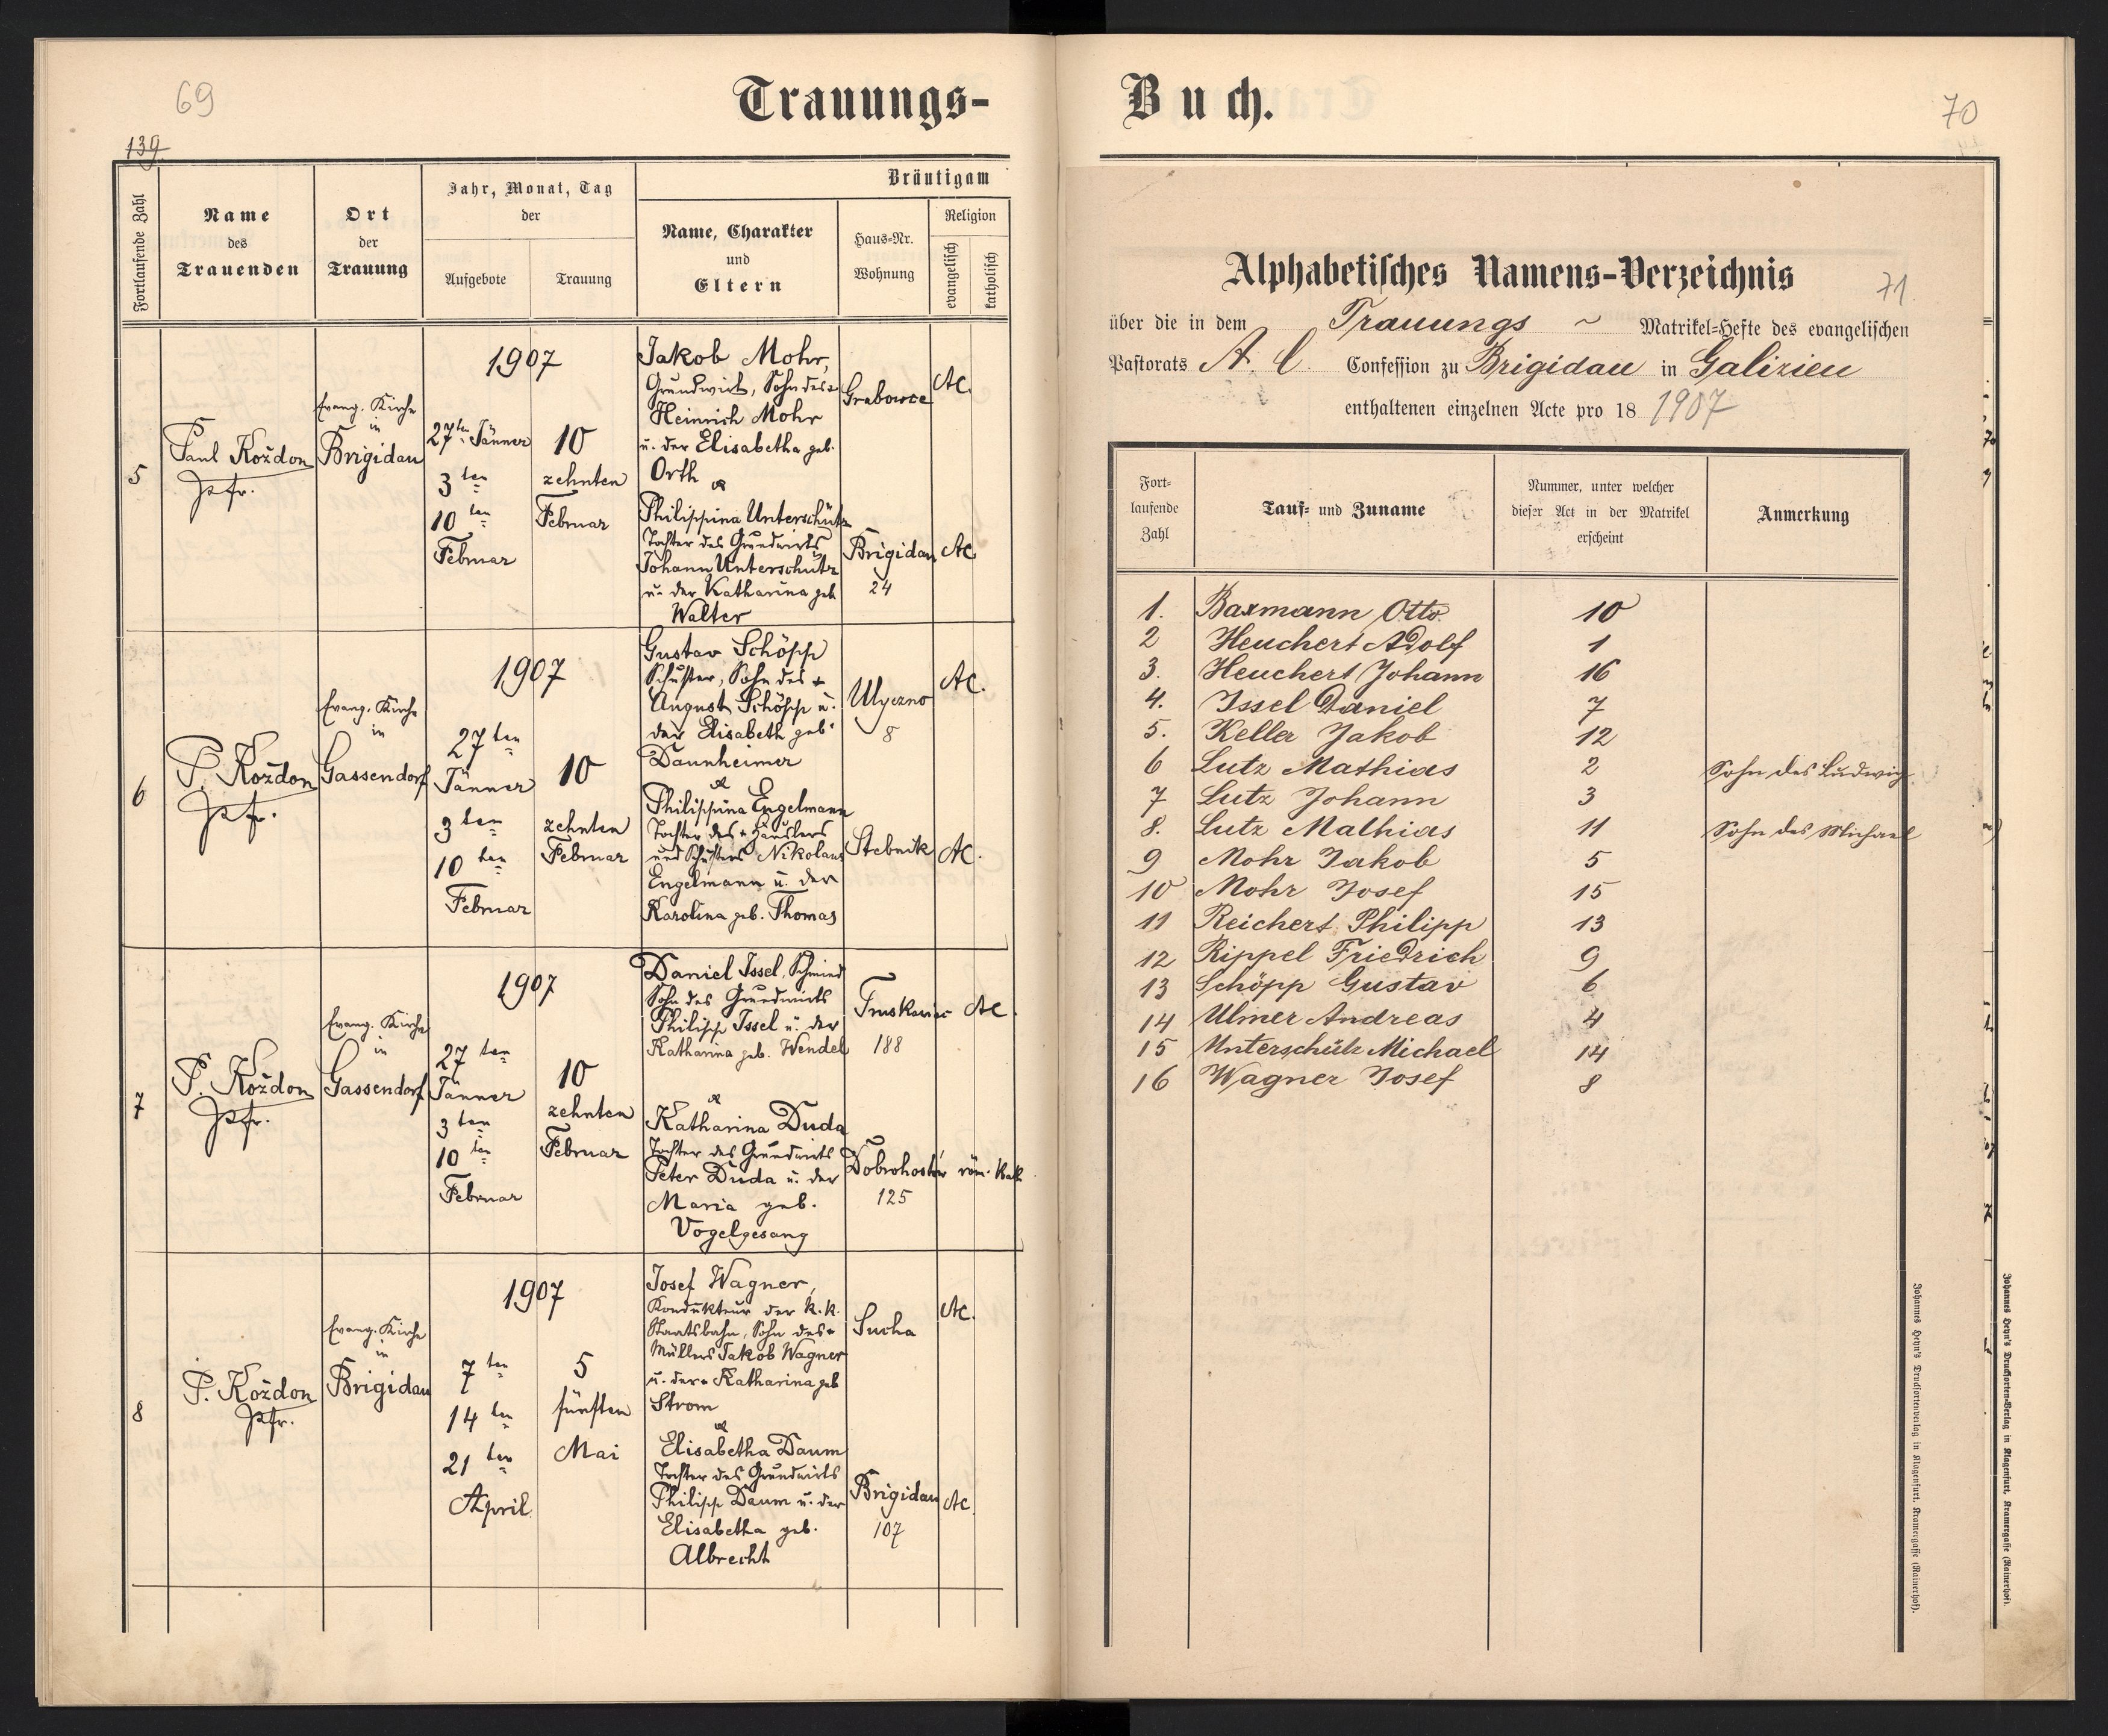 69
139
Trauungs-
Fortlaufende Zahl
Name
des
Trauenden
Ort
der
Trauung
Jahr, Monat, Tag
der
Aufgebote
Trauung
Bräutigam
Name, Charakter
und
Eltern
Haus-Nr.
Wohnung
Religion
evangelisch
katholisch
5
Paul Kożdon
Pfr.
Evang. Kirche
in
Brigidau
1907
27ten Jänner
3 ten
10 ten
Februar
10
zehnten
Februar
Jakob Mohr,
Grundwirt, Sohn des +
Heinrich Mohr
u. der Elisabetha geb.
Orth
Philippina Unterschütz
Tochter des Grundwirts
Johann Unterschütz
u. der Katharina geb
Walter
Grabowce
AC.
Brigidau
24
AC
6
P. Kożdon
Pfr.
Evang. Kirche
in
Gassendorf
1907
27 ten
Jänner
3 ten
10 ten
Februar
10
zehnten
Februar
Gustav Schöpp
Schuster, Sohn des +
August Schöpp u.
der Elisabeth geb.
Daunheimer
Philippina Engelmann
Tochter des + Häuslers
und Schusters Nikolaus
Engelmann u. der
Karolina geb. Thomas
Ulyczno
8
AC.
Stebnik
AC.
7
P. Kożdon
Pfr.
Evang. Kirche
in
Gassendorf
1907
27 ten
Jänner
3 ten
10 ten
Februar
10
zehnten
Februar
Daniel Issel, Schmied
Sohn des Grundwirts
Philipp Issel u. der
Katharina geb. Wendel
Katharina Duda
Tochter des Grundwirts
Peter Duda u. der
Maria geb.
Vogelgesang
Truskawiec
188
AC.
Dobrohostów
125
röm. kath
8
P. Kożdon
Pfr.
Evang. Kirche
in
Brigidau
1907
7 ten
14 ten
21 ten
April
5
fünften
Mai
Josef Wagner,
Kondukteur der k.k.
Staatsbahn, Sohn des +
Müllers Jakob Wagner
u. der + Katharina geb
Strom
Elisabetha Daum
Tochter des Grundwirts
Philipp Daum u. der
Elisabetha geb.
Albrecht
Sucha
AC.
Brigidau
107
AC.
Buch.
70
Alphabetisches Namens-Verzeichnis
71
über die in dem Trauungs ~ Matrikel-Hefte des evangelischen
Pastorats A. C. Confession zu Brigidau in Galizien
enthaltenen einzelnen Acte pro 18 1907
Fort-
laufende
Zahl
Tauf- und Zuname
Nummer, unter welcher
dieser Act in der Matrikel
erscheint
Anmerkung
1. Baxmann Otto. 10
2 Heuchert Adolf 1
3. Heuchert Johann 16
4. Issel Daniel 7
5. Keller Jakob 12
6 Lutz Mathias 2 Sohn des Ludwig
7 Lutz Johann 3
8. Lutz Mathias 11 Sohn des Michael
9 Mohr Jakob 5
10 Mohr Josef 15
11 Reichert Philipp 13
12 Rippel Friedrich 9
13 Schöpp Gustav 6
14 Ulmer Andreas 4
15 Unterschütz Michael 14
16 Wagner Josef 8
Johannes Heyn's Drucksortenverlag in Klagenfurt, Kramergasse (Rainerhof).
Johannes Heyn's Drucksorten-Verlag in Klagenfurt, Kramergasse (Rainerhof).